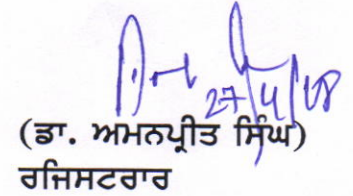 27/4/18
(ਡਾ. ਅਮਨਪ੍ਰੀਤ ਸਿੰਘ)
ਰਜਿਸਟਰਾਰ